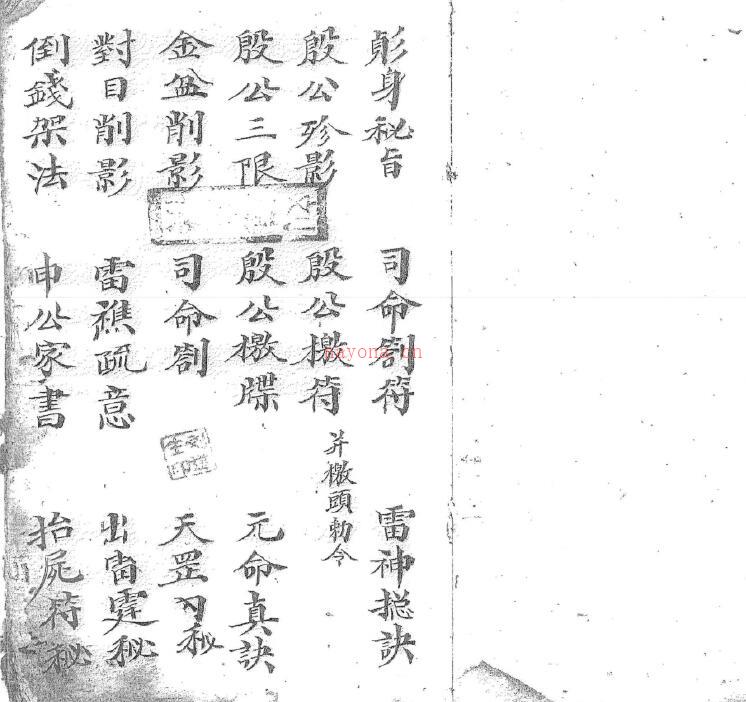 身秘旨 司命劄符 雷神摠訣
殷公殄影 殷公檄符 并檄頭勅令
殷公三限 殷公檄牒 元命真訣
金盆削影 司命劄 天罡秘
對目削影 雷醮疏意 出雷霆秘
倒錢架法 申公家書 抬屍符秘
nayona.cn